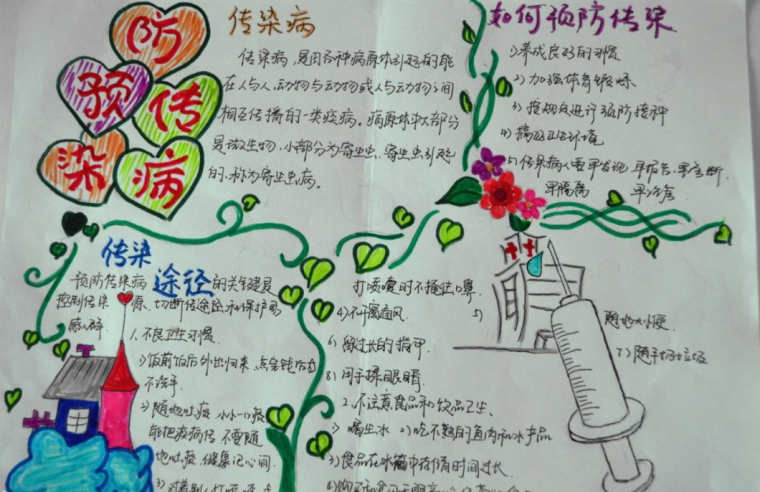 预防传染病
传染病
传染病,是由各种病原体引起的能
在人与人、动物与动物或人与动物之间
相互传播的一类疾病。病原体中大部分
是微生物,小部分为寄生虫,寄生虫引起
的,称为寄生虫病。
如何预防传染
1)养成良好的习惯
2)加强体育锻炼
3)按规定进行预防接种
4)搞好卫生环境
5)传染病人要早发现 早报告 早诊断
早隔离 早治害
传染
途径
预防传染病 的关键是
控制传染 源、切断传途径和保护易
感人群
1、不良卫生习惯
1)饭前饭后外出归来、点金钱后
不洗手
2)随地吐痰 小小一口痰
能把疾病传 不要随
地吐痰 健康记心间
打喷嚏时不掩住口鼻
4)不开窗通风
5)
随地大小便
6)留过长的指甲
7)随手扔垃圾
8)用手揉眼睛
2、不注意食品和饮品卫生、
1)喝生水 2)吃不熟的鱼肉和水产品
3)食品在冰箱中存储时间过长